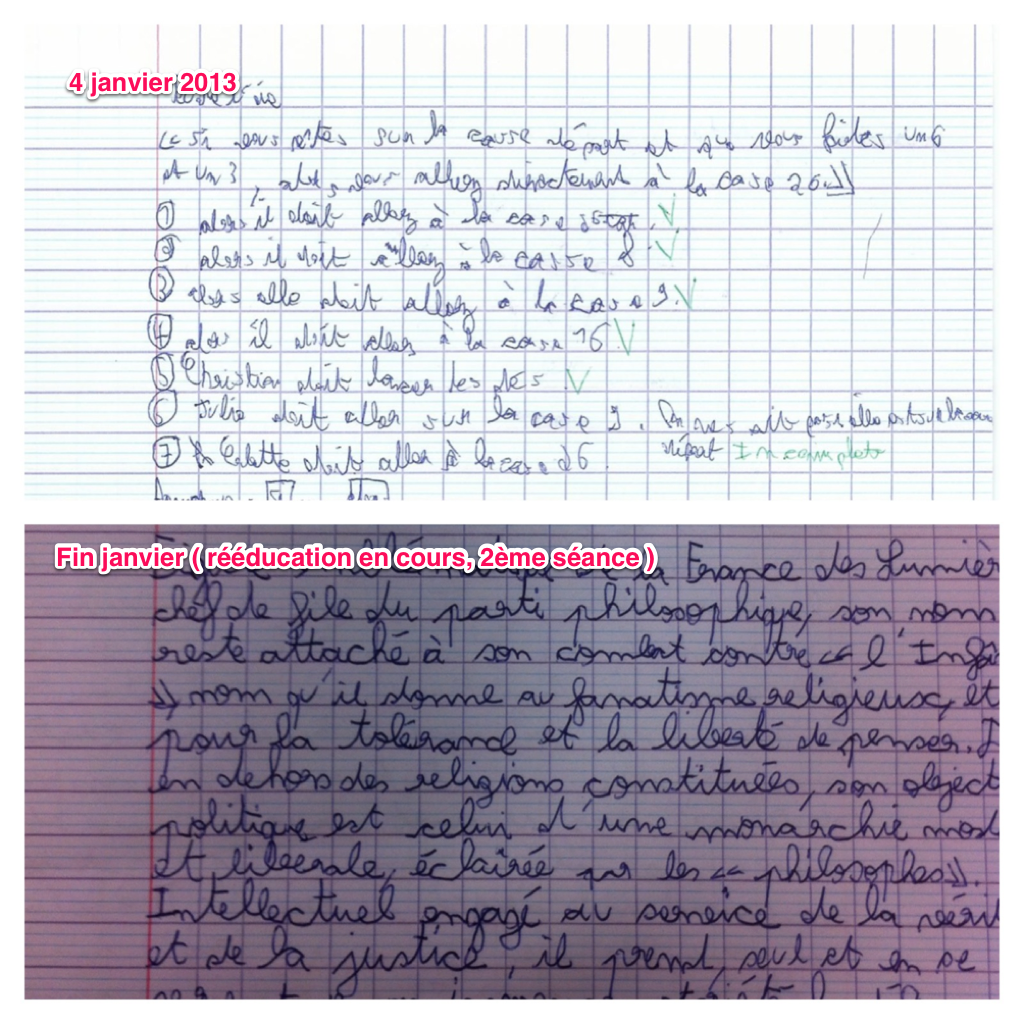 4 janvier 2013
« Si vous êtes sur la casse départ et que vous faites un 6
et un 3, alors vous allez directement à la case 26. »
① alors il doit allez à la case
② alors il doit allez à la casse 8 V
③ alors elle doit allez à la case 9. V
④ alors il doit allez à la case 16 V
⑤ Christian doit lancer les dés. V
⑥ Julie doit aller sur la case 9. On nes dit pas si elle est sur la case
⑦ Colette doit aller à la case 26. départ Incomplete
Fin janvier ( rééducation en cours, 2ème séance )
de la France des Lumièr
chef de file du parti philosophique, son nom
reste attaché à son combat contre « l'Infâ
» nom qu'il donne au fanatisme religieux, et
pour la tolérance et la liberté de penser.
en dehors des religions constituées, son object
politique est celui d'une monarchie mod
et liberale, éclairée par les « philosophes ».
Intellectuel engagé au service de la véri
et de la justice, il prend, seul et en se